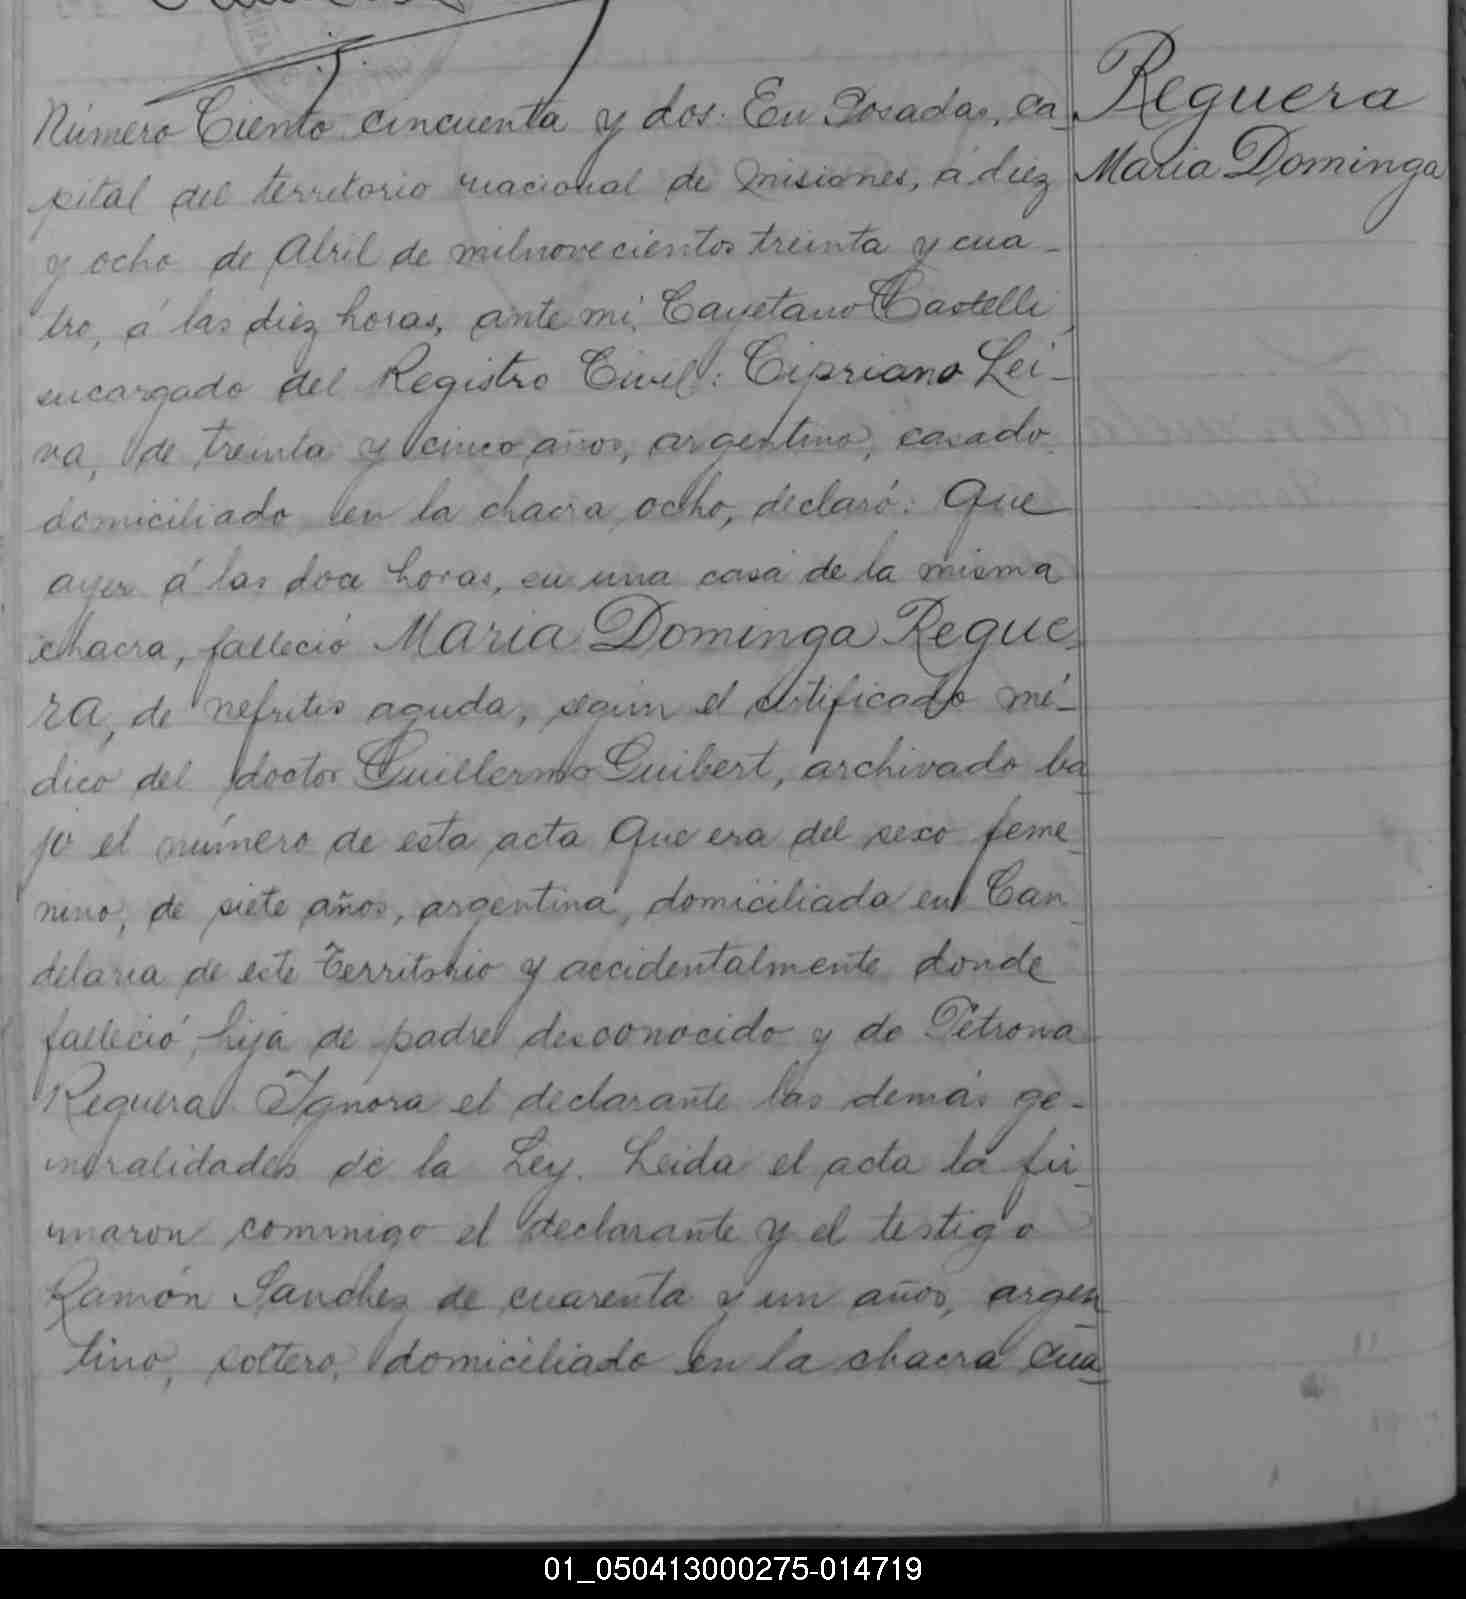 Número Ciento cincuenta y dos: En Posadas, ca-
pital del territorio nacional de Misiones, á diez
y ocho de Abril de milnovecientos treinta y cua-
tro, á las diez horas, ante mí, Cayetano Castelli,
encargado del Registro Civil: Cipriano Lei-
va, de treinta y cinco años, argentino, casado,
domiciliado en la chacra ocho, declaró: Que
ayer á las doce horas, en una casa de la misma
chacra, falleció Maria Dominga Regue-
ra, de nefritis aguda, según el certificado mé-
dico del doctor Guillermo Guibert, archivado ba-
jo el número de esta acta Que era del sexo feme-
nino, de siete años, argentina, domiciliada en Can-
delaria de este Territorio y accidentalmente donde
falleció, hija de padre desconocido y de Petrona
Reguera. Ignora el declarante las demás ge-
neralidades de la Ley. Leida el acta la fir-
maron conmigo el declarante y el testigo
Ramón Sanchez de cuarenta y un años, argen-
tino, soltero, domiciliado en la chacra cua-
Reguera
Maria Dominga
01_050413000275-014719